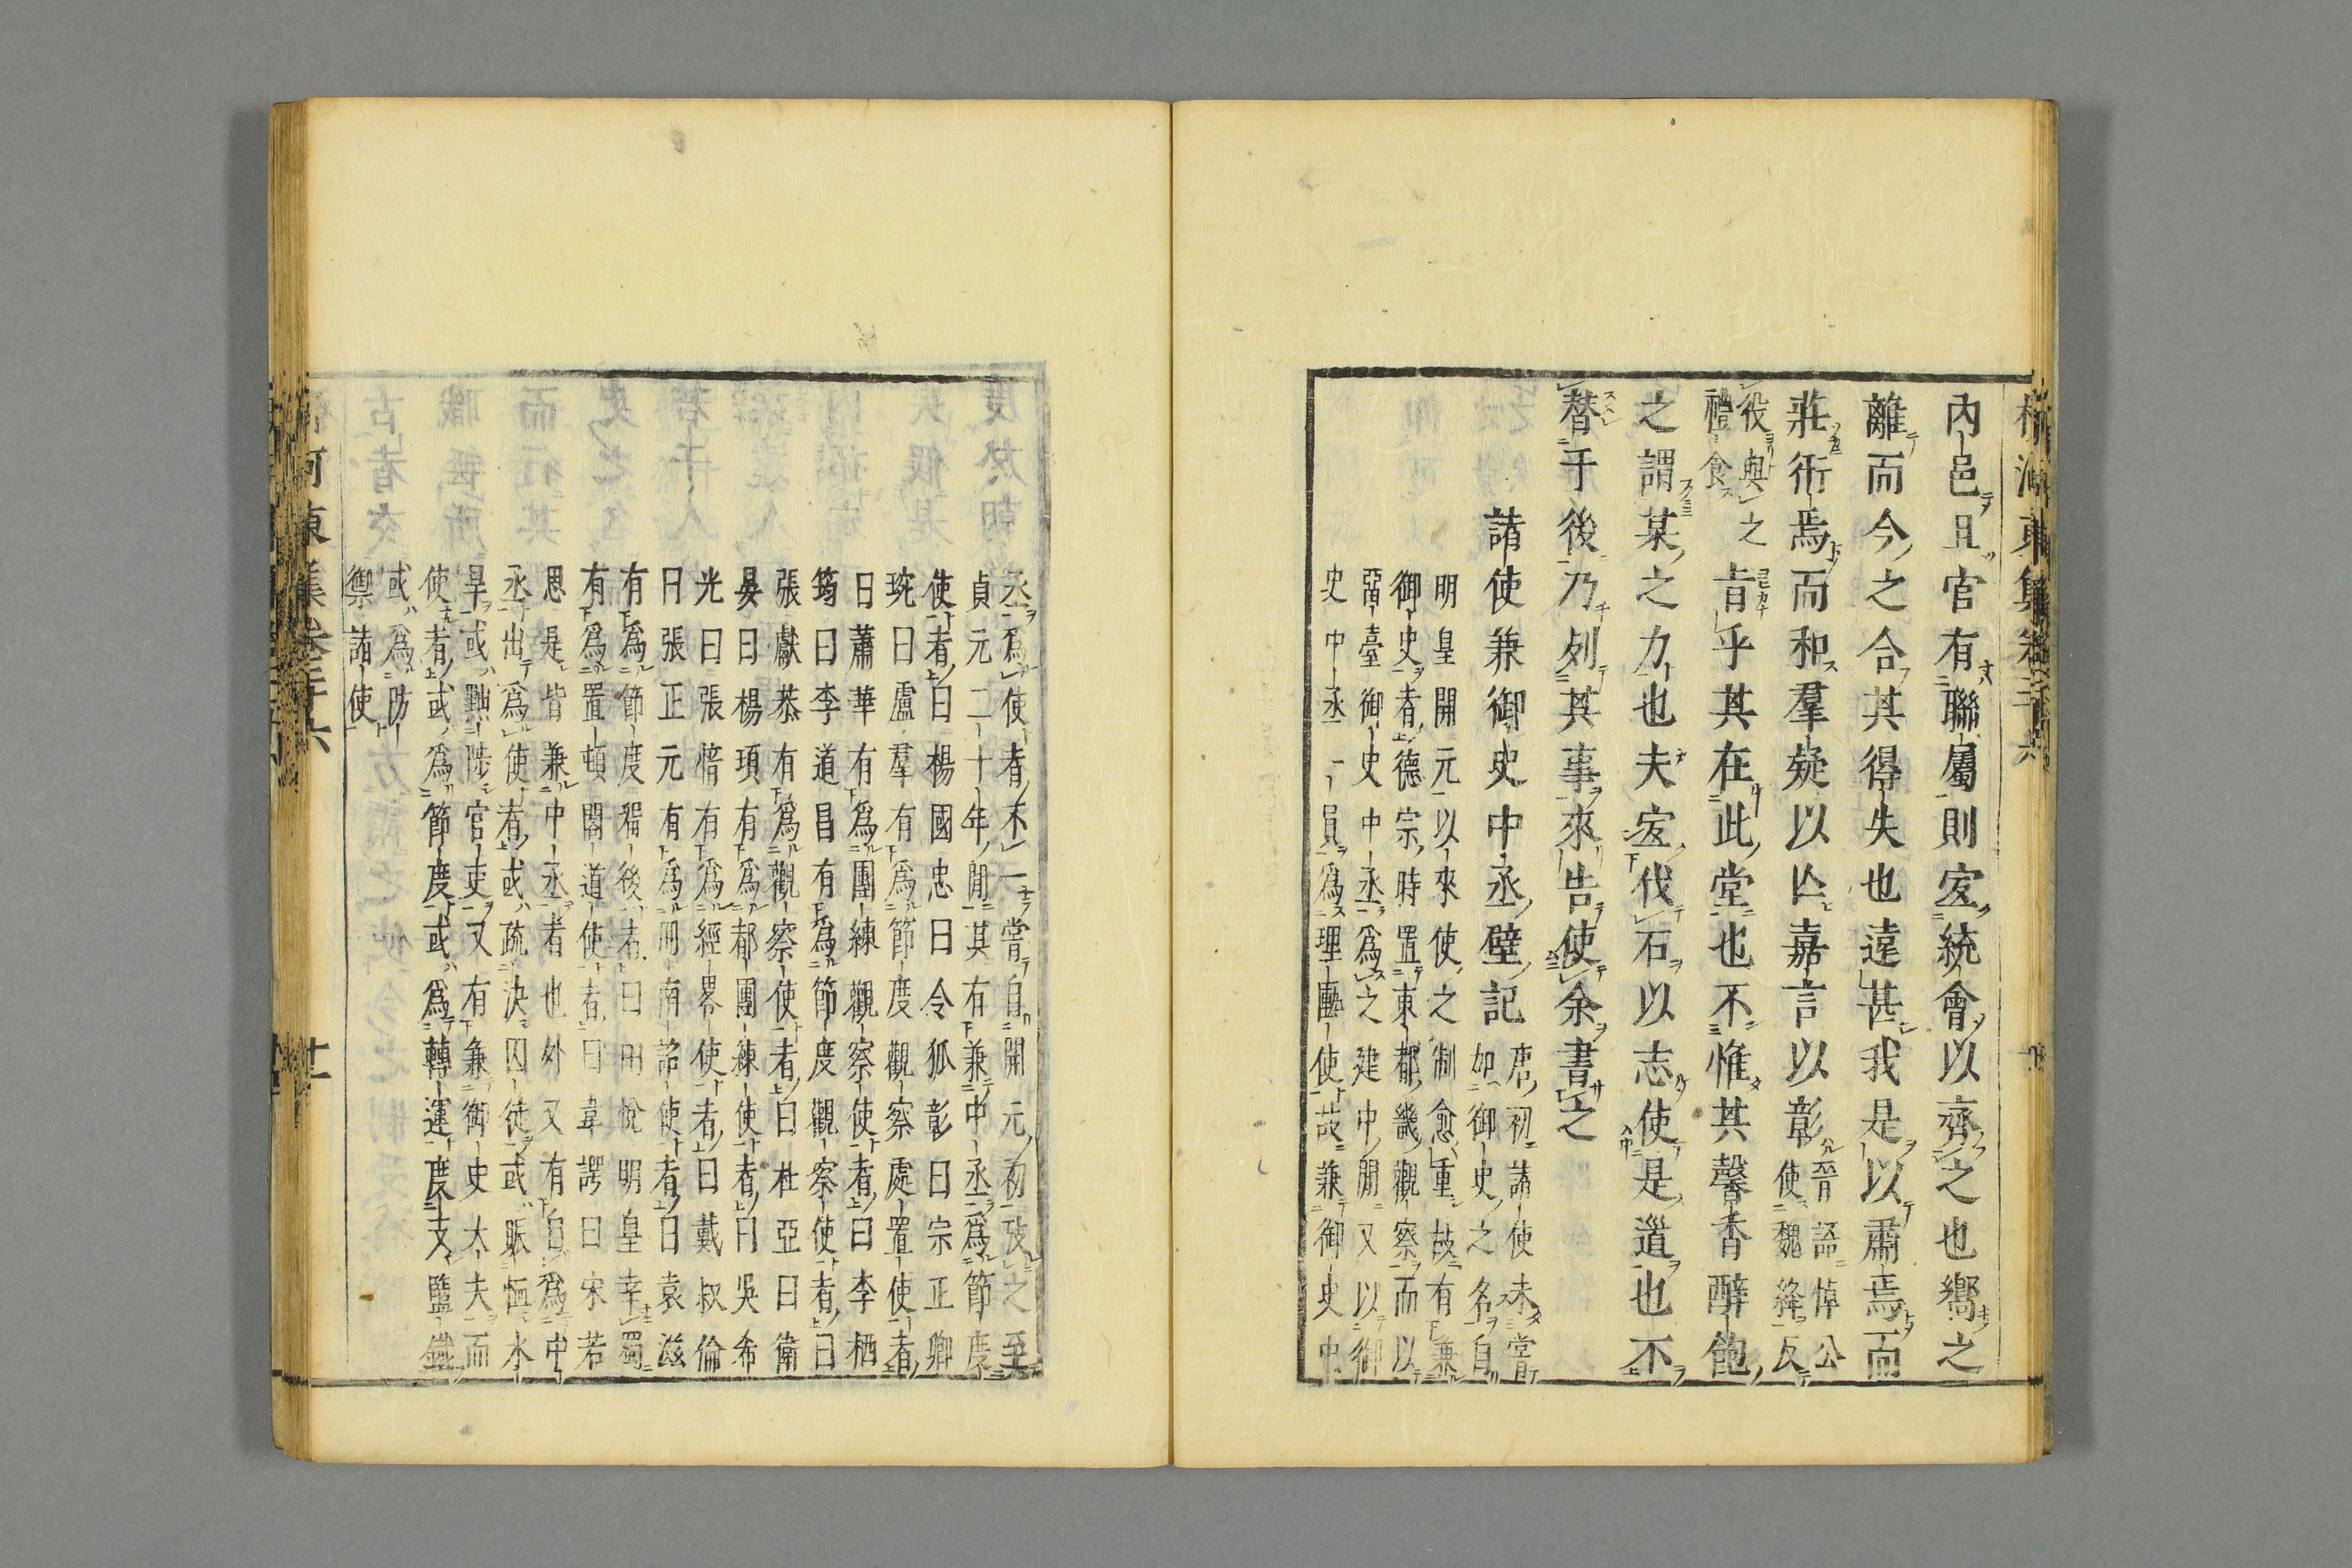 柳河東集卷二十六
內邑且官有聯屬則宐統會以齊之也嚮之
離而今之合其得失也遠甚我是以肅焉而
莊衎焉而和羣疑以亾嘉言以彰晉語悼公
使魏絳反
役與之
禮食旨乎其在此堂也不惟其馨香醉飽
之謂某之力也夫宐伐石以志使是道也不
替于後乃列其事來告使余書之
諸使兼御史中丞壁記唐初諸使未嘗
如御史之名自
明皇開元以來使之制愈重故有兼
御史者德宗時置東都畿觀察而以
畱臺御史中丞爲之建中閒又以御
史中丞一員爲理匭使故兼御史中
丞爲使者不一嘗自開元初攷之至
貞元二十年閒其有兼中丞爲節度
使者曰楊國忠曰令狐彰曰宗正卿
琬曰盧羣有爲節度觀察處置使者
曰蕭華有爲團練觀察使者曰李栖
筠曰李道昌有爲節度觀察使者曰
張獻恭有爲觀察使者曰杜亞曰衛
晏曰楊頊有爲都團練使者曰吳希
光曰張愔有爲經畧使者曰戴叔倫
曰張正元有爲冊南詔使者曰袁滋
有爲節度畱後者曰田悅明皇幸蜀
有爲置頓閣道使者曰韋諤曰宋若
思是皆兼中丞者也外又有自爲中
丞出爲使者或疏決囚徒或賑恤水
旱或黜陟官吏又有兼御史大夫而
使者或爲節度或爲轉運度支鹽鐵
或爲防
禦諸使
柳河東集卷二十六
十一